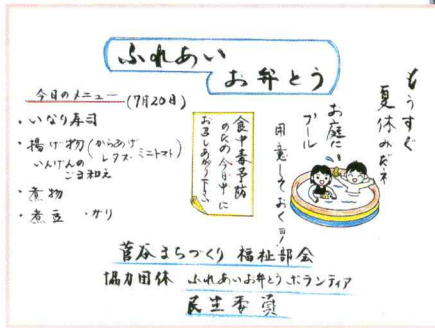 ふれあい
お弁とう
今日のメニュー (7月20日)
・いなり寿司
・揚げ物(からあげ
レタス・ミニトマト)
いんげんの
ごま和え
・煮物
・煮豆 ・ガリ
食中毒予防
のため今日中に
お召しあがり下さい
もうすぐ
夏休みだネ
お庭に
プール
用意しておくヨ!
菅谷まちづくり 福祉部会
協力団体 ふれあいお弁とうボランティア
民生委員